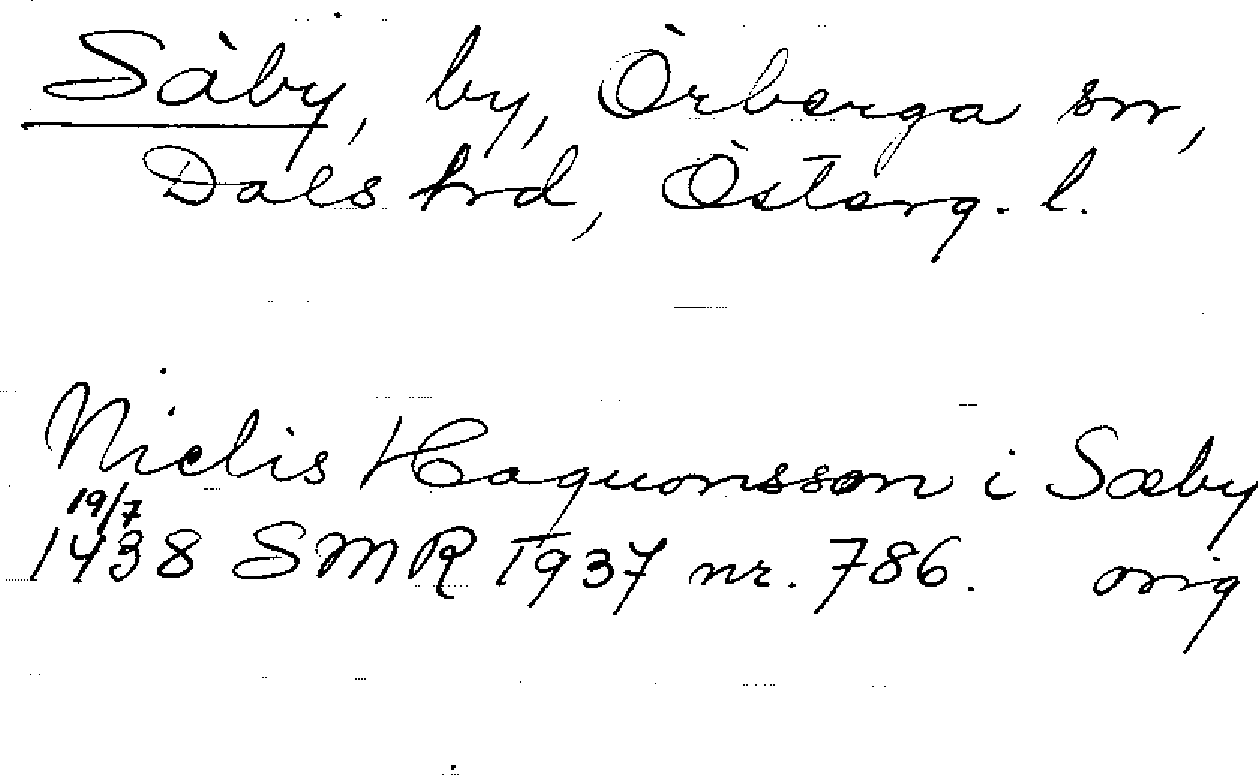 Säby, by, Örberga sn,
Dals hrd, Österg. l.
Niclis Haquonsson i Sæby
19/7
1438 SMR 1937 nr. 786. orig